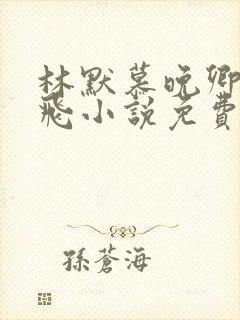 林默慕晚卿
飛小說免費
孫蒼海